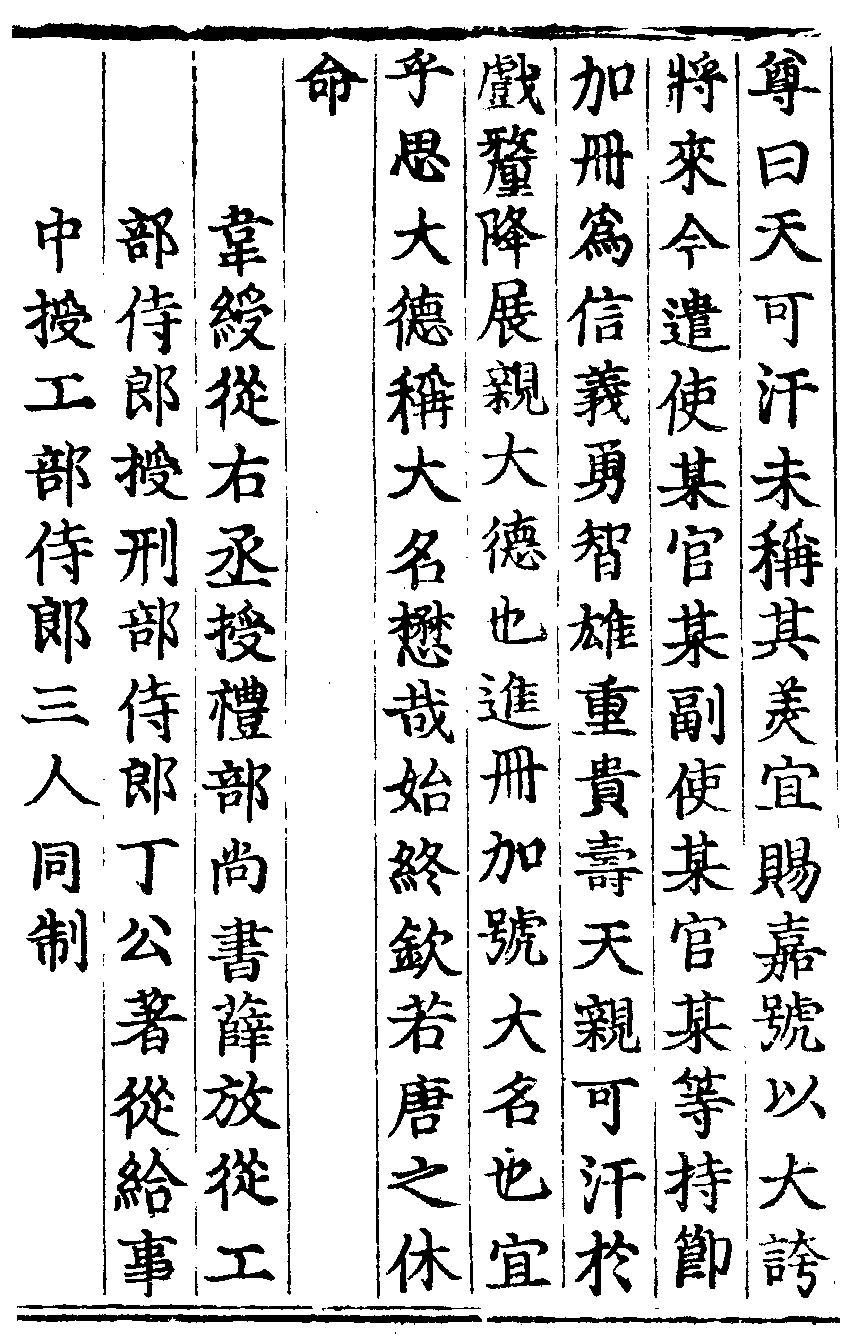 尊曰天可汗未稱其美宜賜嘉號以大誇
將來今遣使某官某副使某官某等持節
加冊為信義勇智雄重貴壽天親可汗於
戲釐降展親大德也進冊加號大名也宜
乎思大德稱大名懋哉始終欽若唐之休
命
韋綬從右丞授禮部尚書薛放從工
部侍郎授刑部侍郎丁公著從給事
中授工部侍郎三人同制